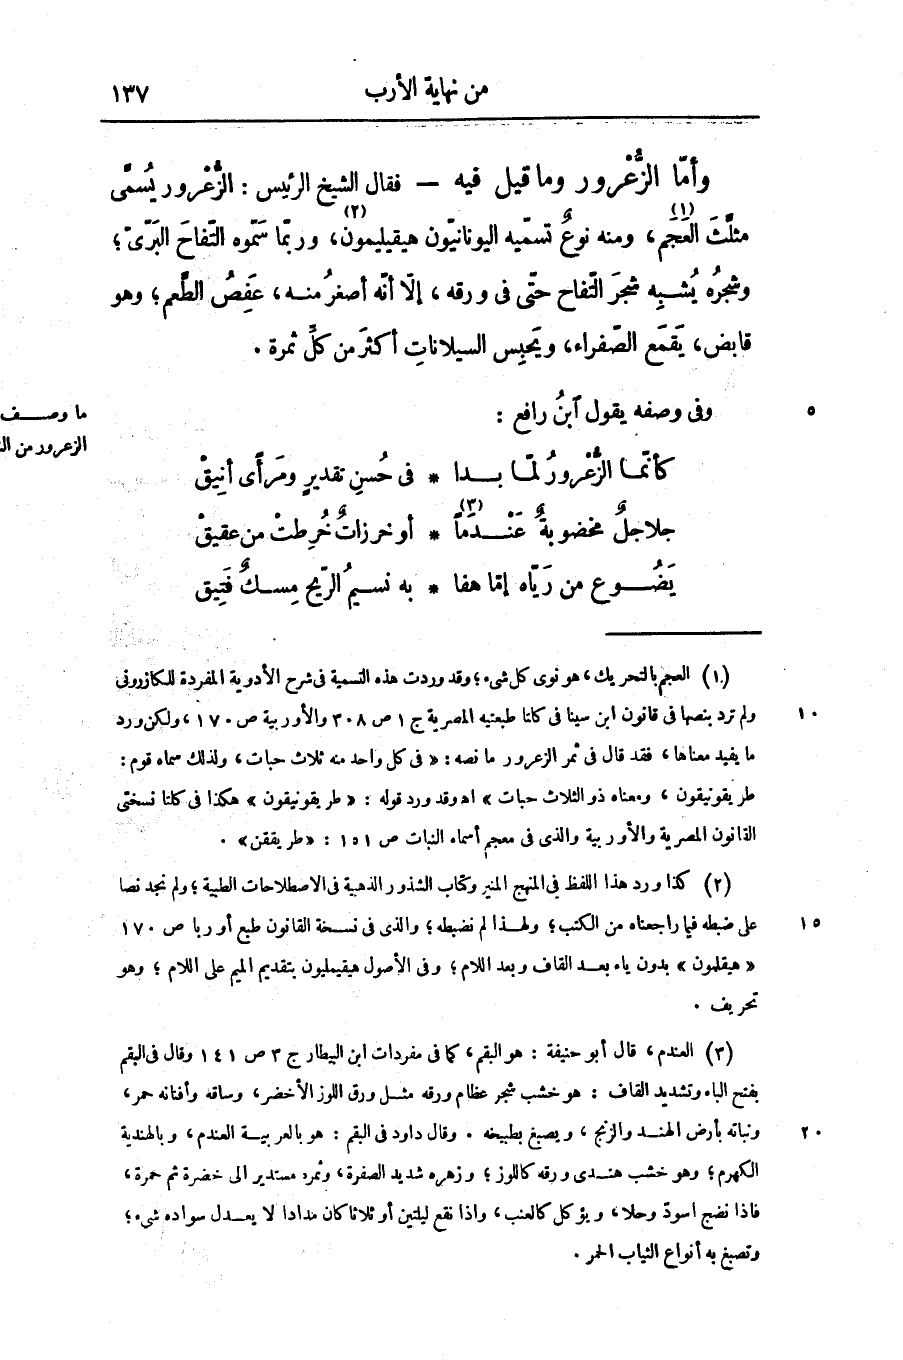 من نهاية الأرب ١٣٧
وأمّا الزُّعْرور وما قيل فيه — فقال الشيخ الرئيس : الزُّعْرور يُسمَّى
مثلَّثَ العَجَم(١)، ومنه نوعٌ تسمّيه اليونانيّون هيقيليمون(٢)، وربمّا سَمّوه التّفاحَ البَرّىّ؛
وشجرُه يُشبِه شجرَ التّفاح حتّى فى ورقه ، إلّا أنّه أصغرُ منه، عَفِصُ الطَّعم؛ وهو
قابض، يَقمَع الصّفراء، ويَحبِس السيلاناتِ أكثرَ من كلِّ ثمرة .
وفى وصفه يقول آبنُ رافع : ٥
ما وصف
الزعرور من
كأنّما الزُّعْرورُ لمّا بدا * فى حُسنِ تقديرٍ ومَرأًى أنِيقْ
جلاجلٌ مخضوبةٌ عَنْدَماً(٣) * أو خرزاتٌ خُرِطتْ من عقيقْ
يَضُوع من رَيّاه إمّا هفا * به نسيمُ الرّيح مِسكٌ فَتِيق
(١) العجم بالتحريك، هو نوى كل شىء؛ وقد وردت هذه التسمية فى شرح الأدوية المفردة للكازرونى
ولم ترد بنصها فى قانون ابن سينا فى كلتا طبعتيه المصرية ج ١ ص ٣٠٨ والأوربية ص ١٧٠، ولكن ورد ١٠
ما يفيد معناها، فقد قال فى ثمر الزعرور ما نصه : « فى كل واحد منه ثلاث حبات، ولذلك سماه قوم :
طريقونيقون، ومعناه ذو الثلاث حبات » اه وقد ورد قوله : « طريقونيقون » هكذا فى كلتا نسختى
القانون المصرية والأوربية والذى فى معجم أسماء النبات ص ١٥١ : «طريققن» .
(٢) كذا ورد هذا اللفظ فى المنهج المنير وكتاب الشذور الذهبية فى الاصطلاحات الطبية؛ ولم نجد نصا
على ضبطه فيما راجعناه من الكتب؛ ولهذا لم نضبطه؛ والذى فى نسخة القانون طبع أوربا ص ١٧٠ ١٥
« هيقلمون » بدون ياء بعد القاف وبعد اللام؛ وفى الأصول هيقيمليون بتقديم الميم على اللام؛ وهو
تحريف .
(٣) العندم، قال أبو حنيفة : هو البقم، كما فى مفردات ابن البيطار ج ٣ ص ١٤١ وقال فى البقم
بفتح الباء وتشديد القاف : هو خشب شجر عظام ورقه مثل ورق اللوز الأخضر، وساقه وأفنانه حمر،
ونباته بأرض الهند والزنج، ويصبغ بطبيخه . وقال داود فى البقم : هو بالعربية العندم، وبالهندية ٢٠
الكهرم؛ وهو خشب هندى ورقه كاللوز؛ وزهره شديد الصفرة، وثمره مستدير الى خضرة ثم حمرة،
فاذا نضج اسودّ وحلا، ويؤكل كالعنب، واذا نقع ليلتين أو ثلاثا كان مدادا لا يعدل سواده شىء؛
وتصبغ به أنواع الثياب الحمر .